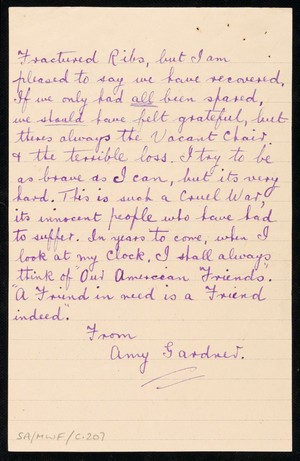 Fractured Ribs, but I am
pleased to say we have recovered,
If we only had all been spared,
we should have felt grateful, but
theres always the Vacant Chair.
& the terrible loss. I try to be
as brave as I can, but its very
hard. This is such a Cruel War,
its innocent people who have had
to suffer. In years to come, when I
look at my Clock, I shall always
think of "Our American Friends".
"A Friend in need is a Friend
indeed".
From
Amy Gardner.
SA/MWF/C.207